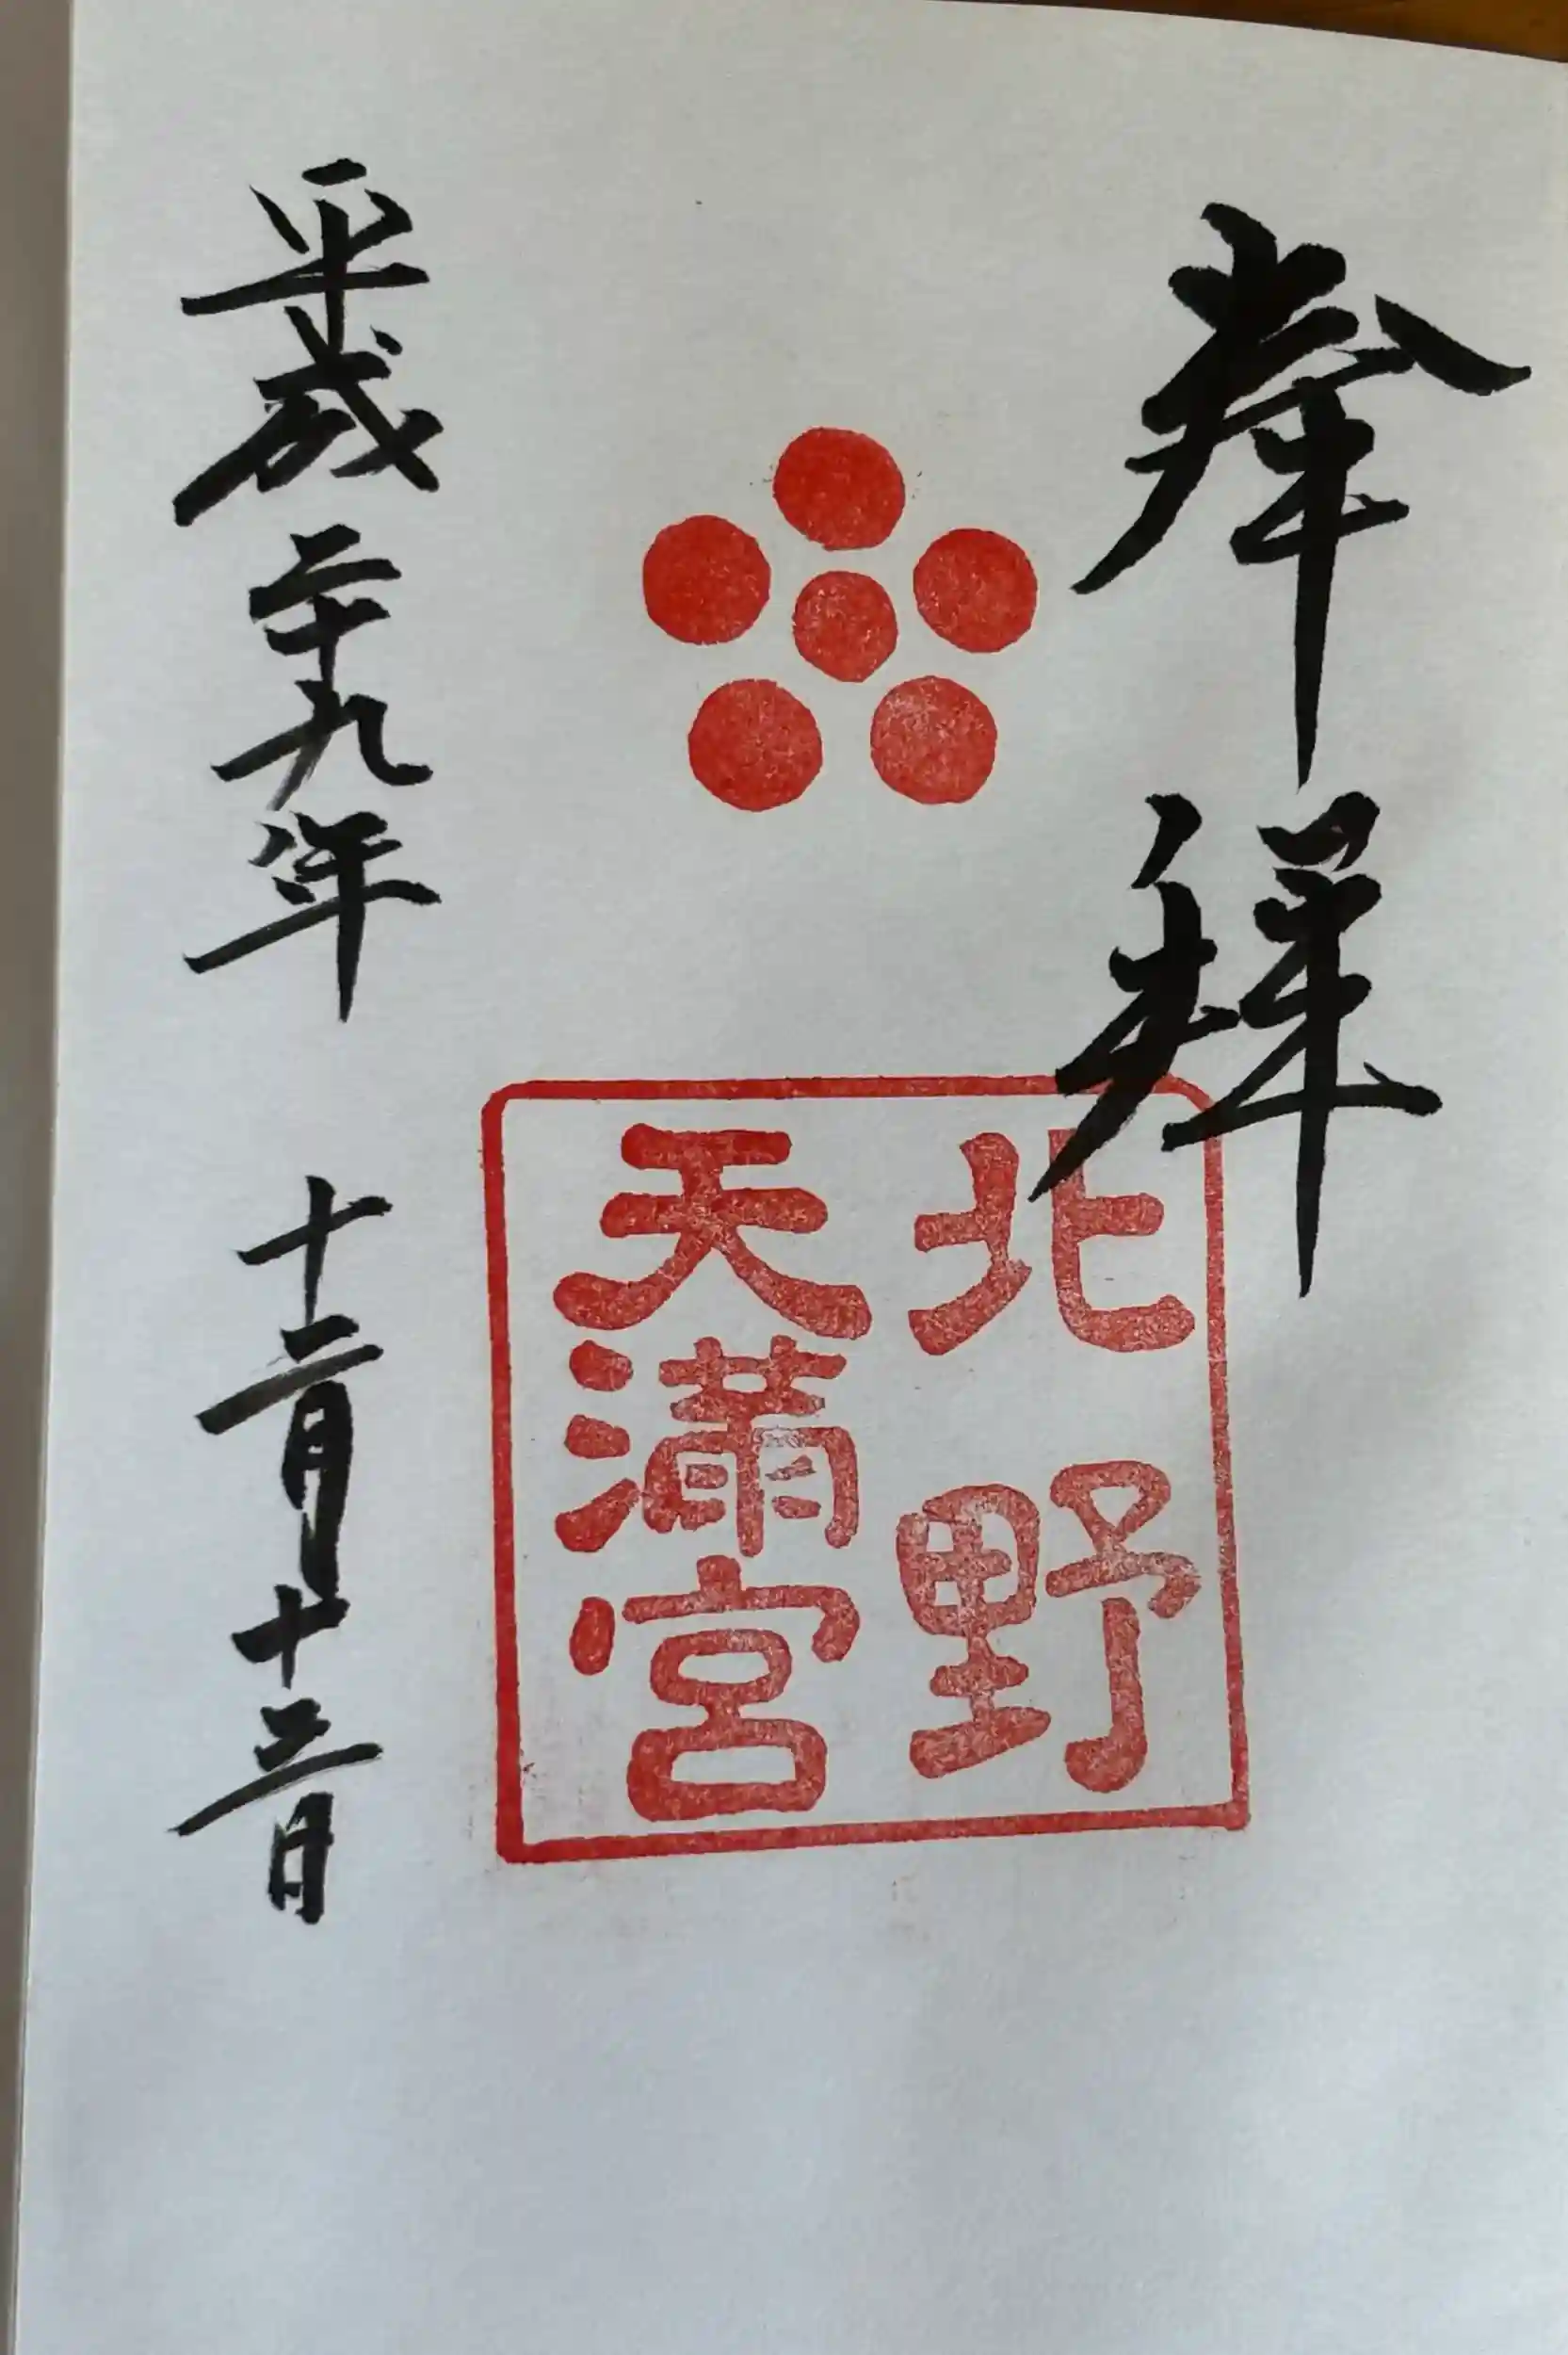 奉拝
北野
天満宮
平成二十九年 十二月十三日